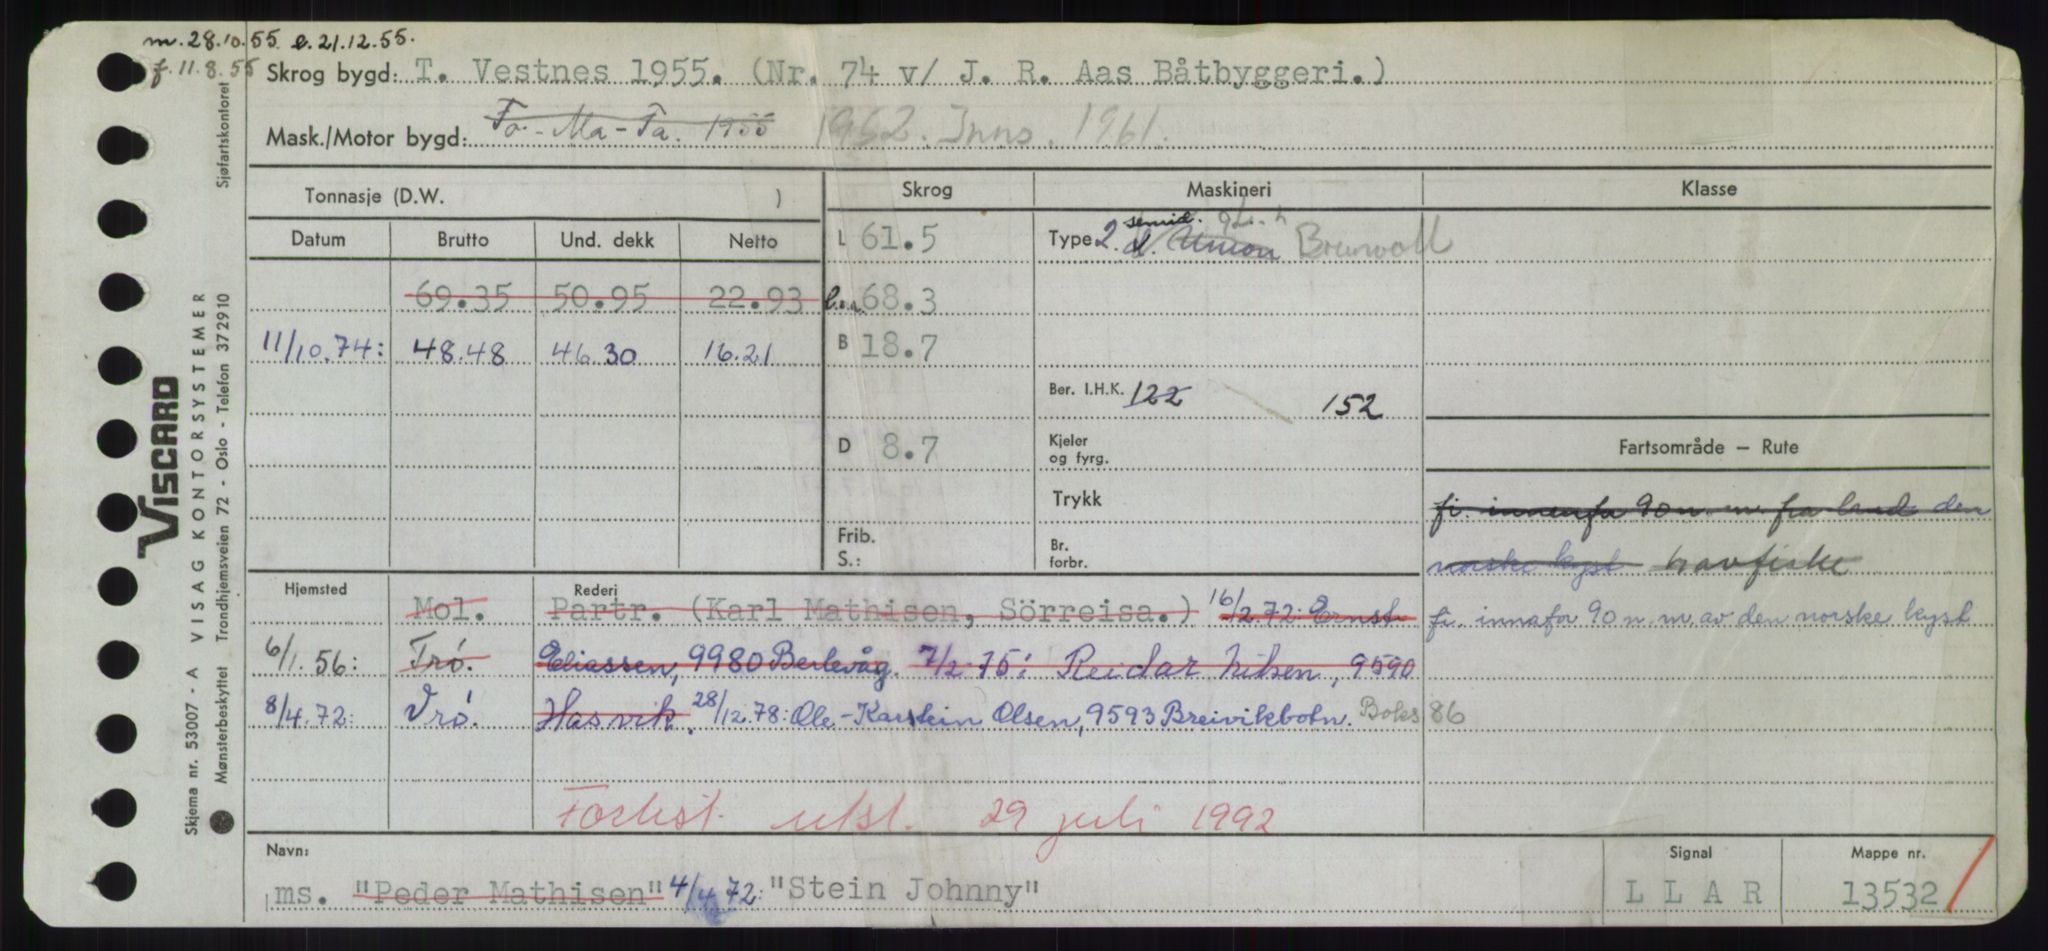 m. 28.10.55 e. 21.12.55.
f. 11.8.55 Skrog bygd: T. Vestnes 1955. (Nr. 74 v/ J. R. Aas Båtbyggeri.)
Mask./Motor bygd: Fo.-Ma-Fa. 1955 1952. Inns. 1961.
Tonnasje (D.W. ) Skrog Maskineri Klasse
Datum Brutto Und. dekk Netto L 61.5 Type 2 semid. Union Brunvoll
69.35 50.95 22.93 68.3
11/10.74: 48.48 46.30 16.21 B 18.7
Ber. I.H.K. 122 152
D 8.7 Kjeler og fyrg. Fartsområde — Rute
Trykk fi. innenfor 90 n. m. fra land den
Frib. S.: Br. forbr. norske kyst havfiske
Hjemsted Rederi
Mol. Partr. (Karl Mathisen, Sörreisa.) 16/2.72: Ernst fi. innafor 90 n. m. av den norske kyst
6/1.56: Trö. Eliassen, 9980 Berlevåg. 7/2-75: Reidar Nilsen, 9590
8/4.72: Vrö. Hasvik. 28/12.78: Ole-Karstein Olsen, 9593 Breivikbotn. Boks 86
utsl. 29 juli 1992
Navn: Signal Mappe nr.
ms. "Peder Mathisen" 4/4 72: "Stein Johnny" LLAR 13532
VISCARD
Skjema nr. 53007 - A VISAG KONTORSYSTEMER
Mønsterbeskyttet Trondhjemsveien 72 - Oslo - Telefon 372910
Sjøfartskontoret